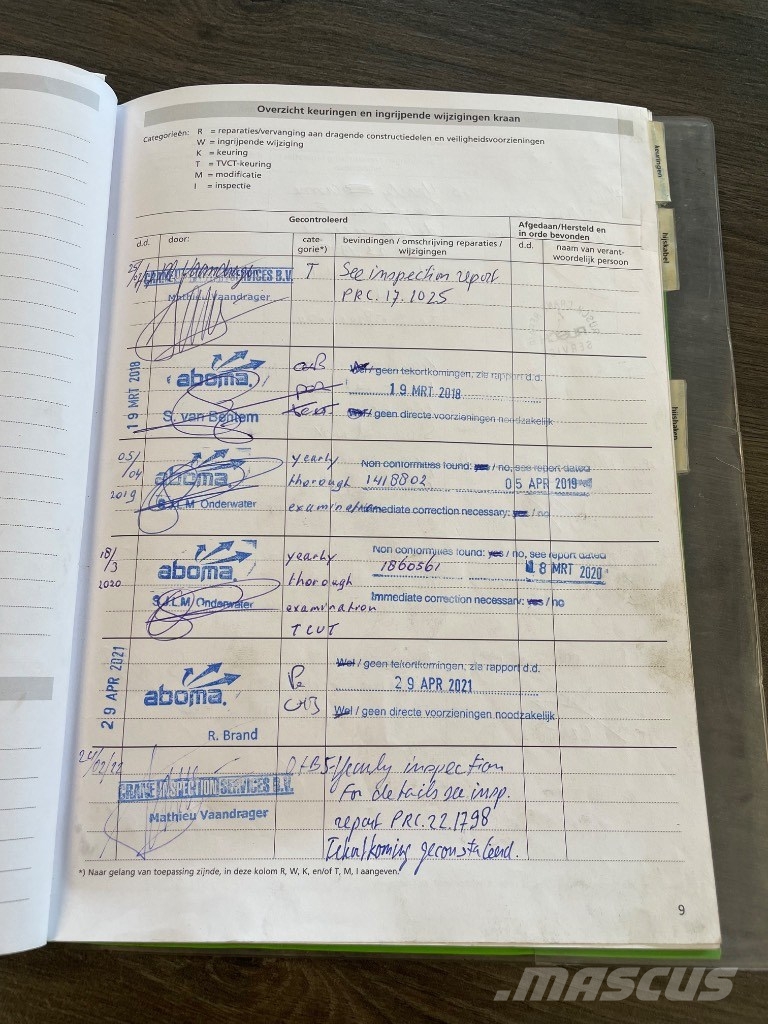 Overzicht keuringen en ingrijpende wijzigingen kraan
Categorieën: R = reparaties/vervanging aan dragende constructiedelen en veiligheidsvoorzieningen
W = ingrijpende wijziging
K = keuring
T = TVCT-keuring
M = modificatie
I = inspectie
keuringen
hijskabel
hijshaken
Gecontroleerd
Afgedaan/Hersteld en in orde bevonden
d.d.
door:
cate-gorie*)
bevindingen / omschrijving reparaties / wijzigingen
d.d.
naam van verant-woordelijk persoon
CRANE INSPECTION SERVICES B.V.
Mathieu Vaandrager
T
See inspection report
PRC.17.1025
19 MRT 2018
aboma
S. van Bentem
Wel / geen tekortkomingen, zie rapport d.d.
19 MRT 2018
Wel / geen directe voorzieningen noodzakelijk
05/04 2019
aboma
S.J.L.M Onderwater
yearly
thorough
examination
Non conformities found: yes / no, see report dated
1418802 05 APR 2019
Immediate correction necessary: yes / no
18/3 2020
aboma
S.J.L.M Onderwater
yearly
thorough
examination
TCVT
Non conformities found: yes / no, see report dated
1860561 18 MRT 2020
Immediate correction necessary: yes / no
29 APR 2021
aboma
R. Brand
Wel / geen tekortkomingen, zie rapport d.d.
29 APR 2021
Wel / geen directe voorzieningen noodzakelijk
24/02/22
CRANE INSPECTION SERVICES B.V.
Mathieu Vaandrager
yearly inspection
For details see insp.
report PRC.22.1798
Tekortkoming geconstateerd.
*) Naar gelang van toepassing zijnde, in deze kolom R, W, K, en/of T, M, I aangeven.
9
MASCUS